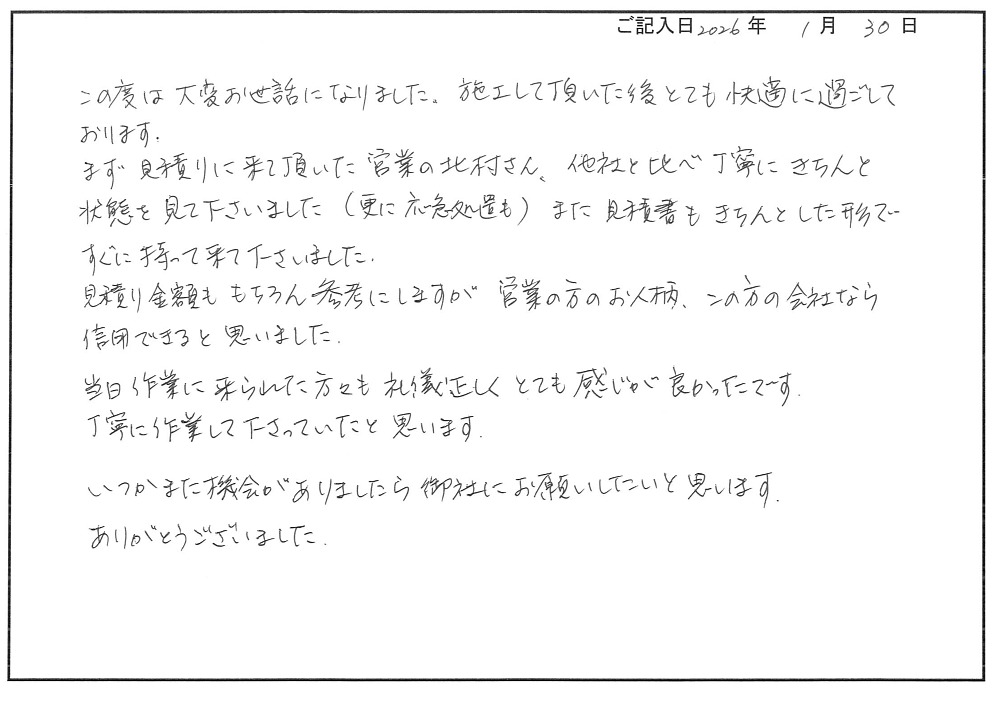 ご記入日2026年 1月 30日
この度は大変お世話になりました。施工して頂いた後とても快適に過ごして
おります.
まず見積りに来て頂いた営業の北村さん、他社と比べ丁寧にきちんと
状態を見て下さいました(更に応急処置も)また見積書もきちんとした形で
すぐに持って来て下さいました.
見積り金額ももちろん参考にしますが営業の方のお人柄、この方の会社なら
信用できると思いました.
当日作業に来られた方々も礼儀正しくとても感じが良かったです.
丁寧に作業して下さっていたと思います.
いつかまた機会がありましたら御社にお願いしたいと思います.
ありがとうございました.